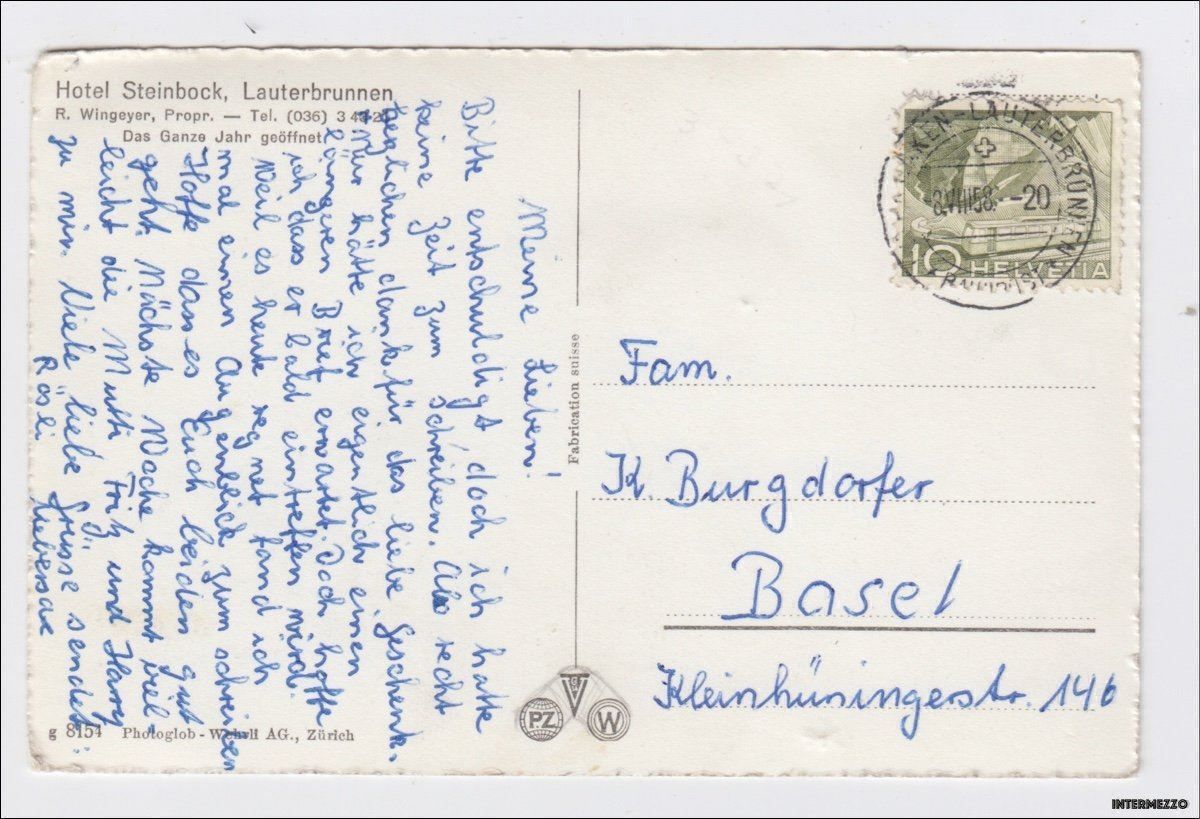 Hotel Steinbock, Lauterbrunnen
R. Wingeyer, Propr. — Tel. (036) 3 43 20
Das Ganze Jahr geöffnet
Meine Lieben!
Bitte entschuldigt doch ich hatte
keine Zeit zum schreiben. Also recht
herzlichen dank für das liebe Geschenk.
Nur hätte ich eigentlich einen
längeren Brief erwartet. Doch hoffe
ich dass er bald eintreffen wird.
Weil es heute regnet fand ich
mal einen Augenblick zum schreiben
Hoffe dass es Euch beiden gut
geht. Nächste Woche kommt viel-
leicht die Mutti Fritz und Harry
zu mir. Viele liebe Grüsse sendet
Rösli Liebersax
g 8154 Photoglob-Wehrli AG., Zürich
Fabrication suisse
PZ
V
W
INTERLAKEN-LAUTERBRUNNEN
-8.VIII58.--20
10 HELVETIA
Fam.
K. Burgdorfer
Basel
Kleinhüningerstr. 146
INTERMEZZO